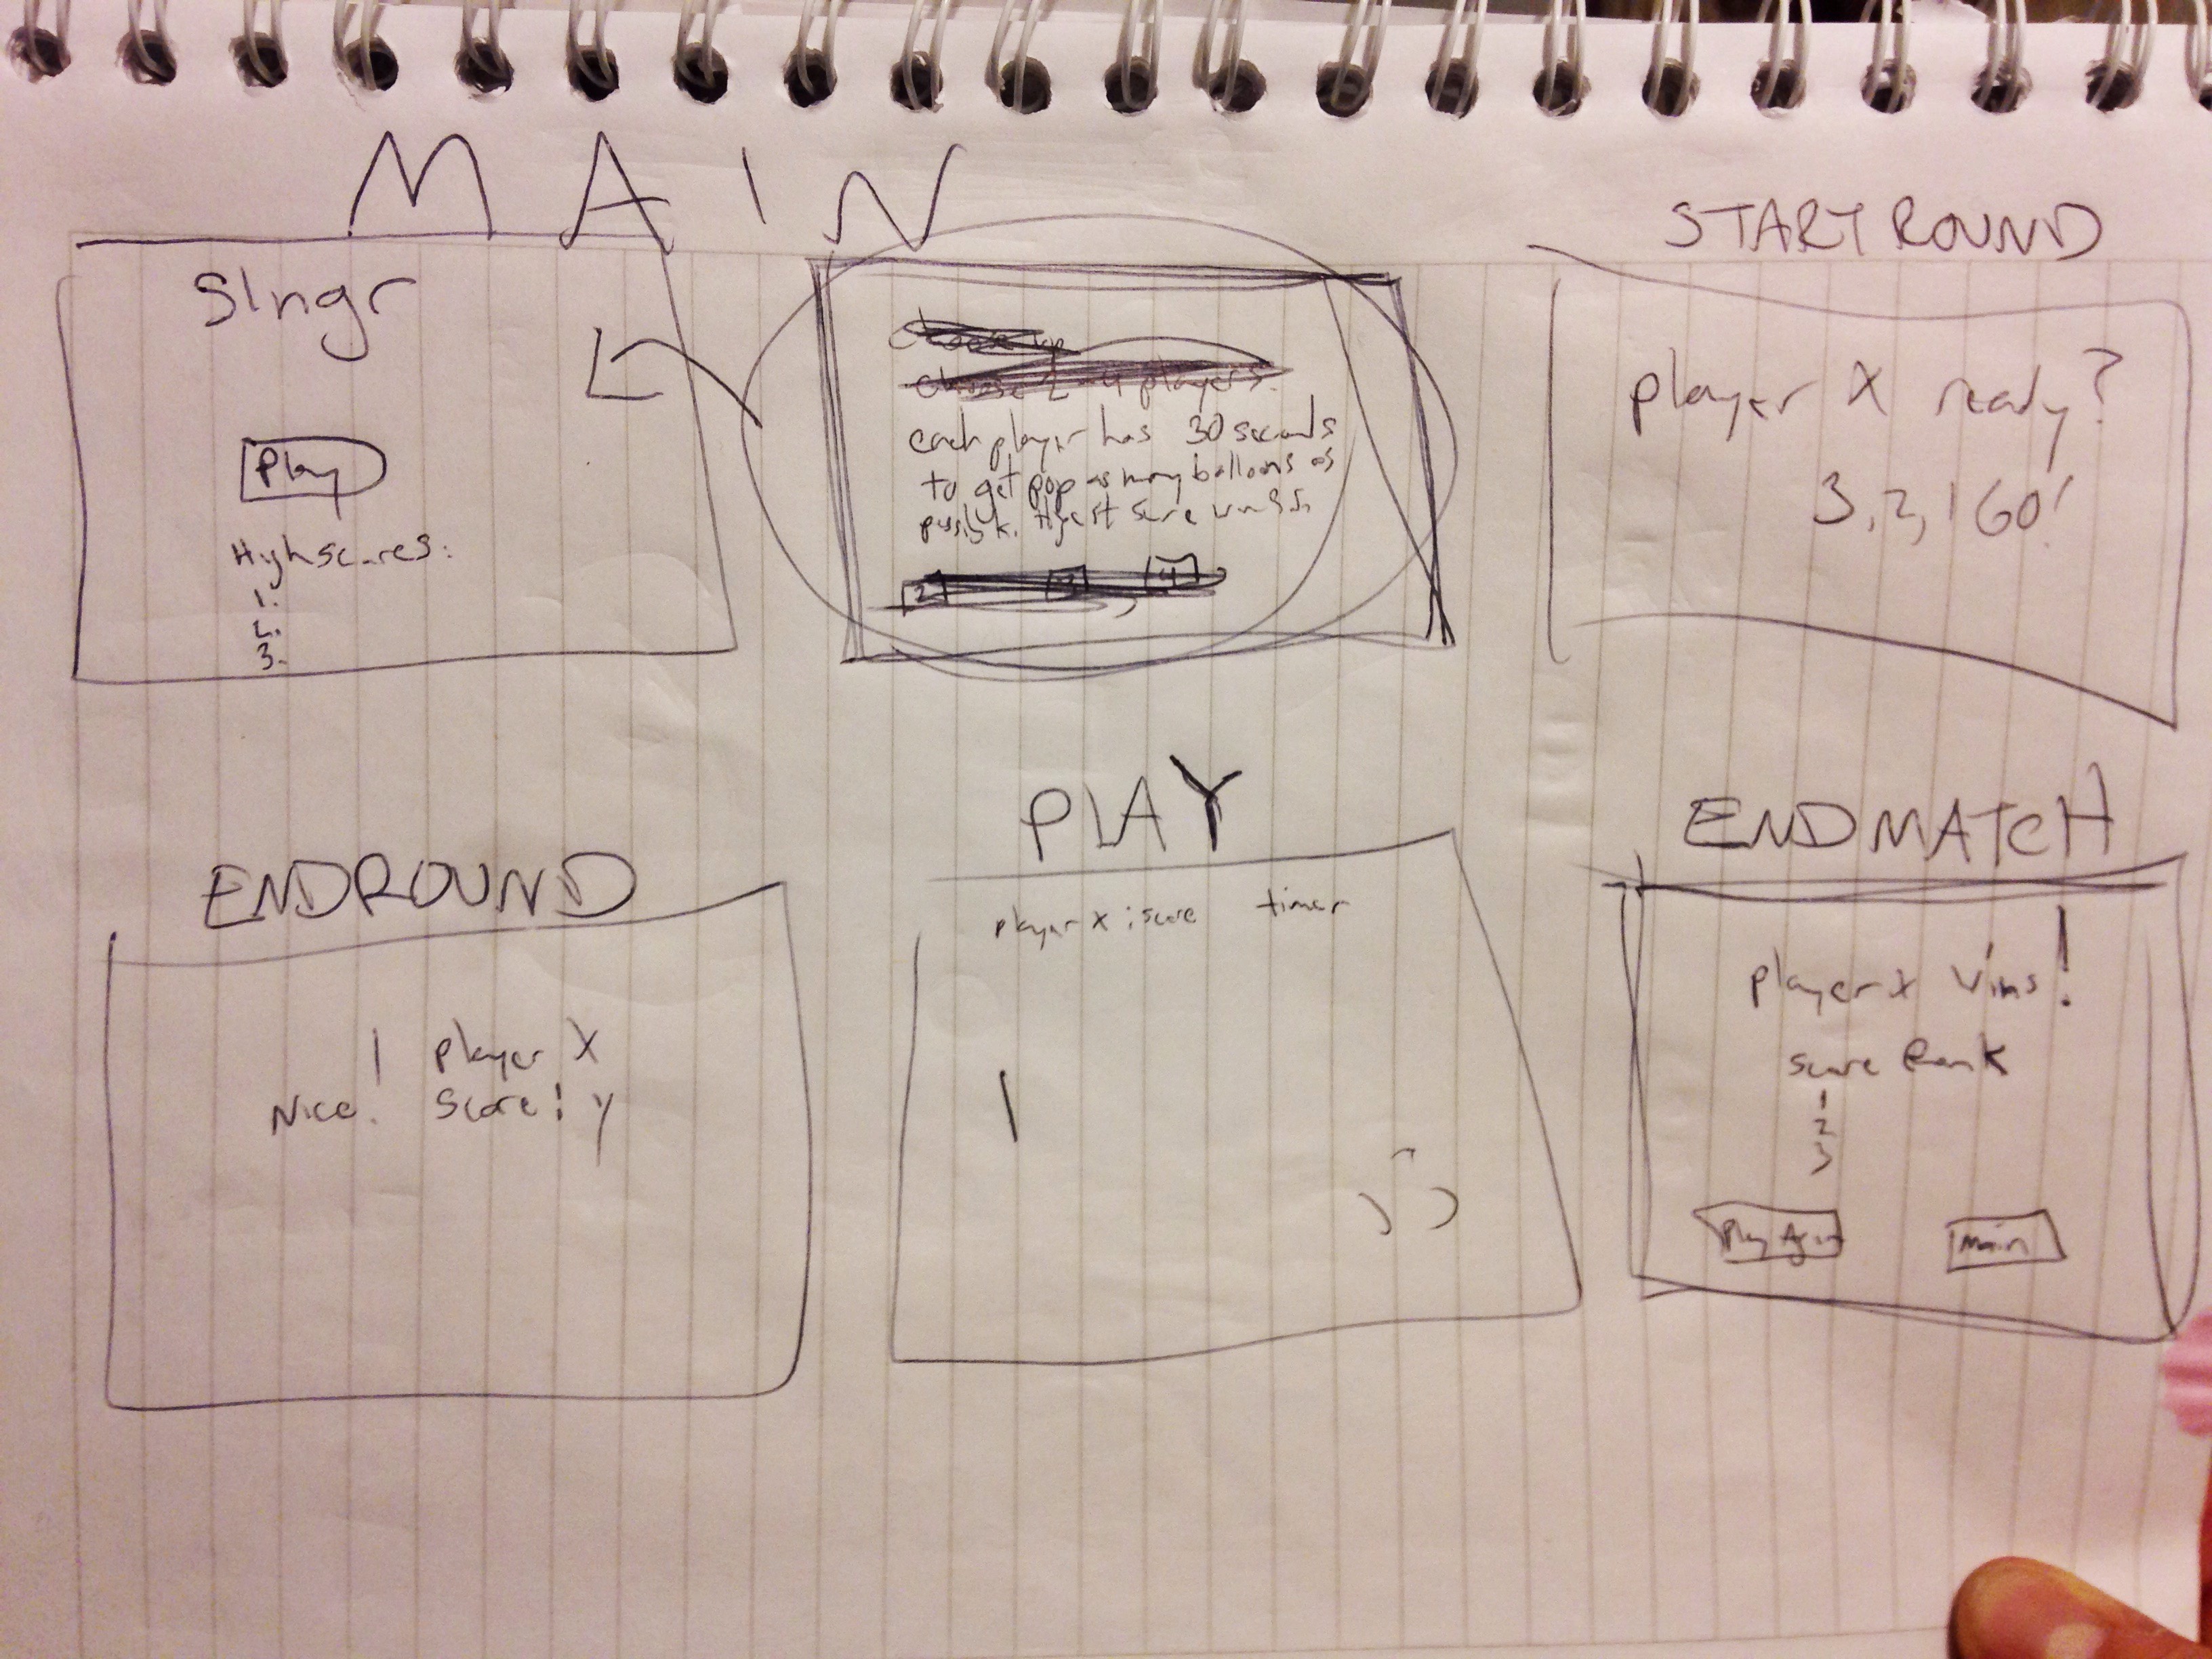 MAIN
Slngr
Play
Highscores:
1.
2.
3.
choose 2-4 players.
each player has 30 seconds
to get pop as many balloons as
possible. Highest score wins
2 3 4
START ROUND
player X ready?
3, 2, 1 GO!
END ROUND
player X
Nice! Score: y
PLAY
player x : score timer
END MATCH
player x wins!
score Rank
1
2
3
Play Again Main